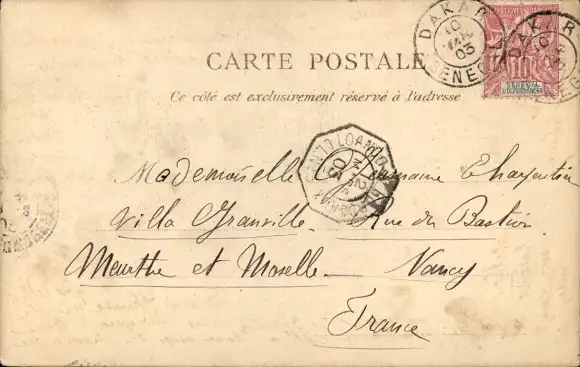 DAKAR
10
03
SENEGAL
DAKAR
10
10
SENEGAL
ET DEPENDANCES
CARTE POSTALE
Ce côté est exclusivement réservé à l'adresse
03
Mademoiselle Charpentier
Villa Granville Rue du Bastion
Meurthe et Moselle Nancy
France